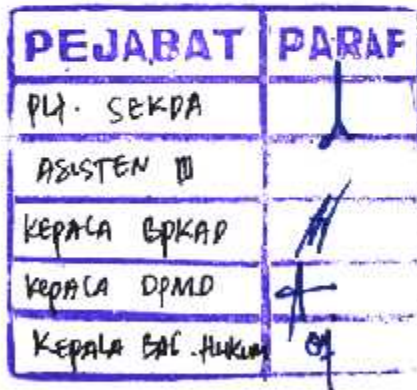 PEJABAT PARAF
PLH. SEKDA
ASISTEN III
KEPALA BPKAD
KEPALA DPMD
KEPALA BAG. HUKUM